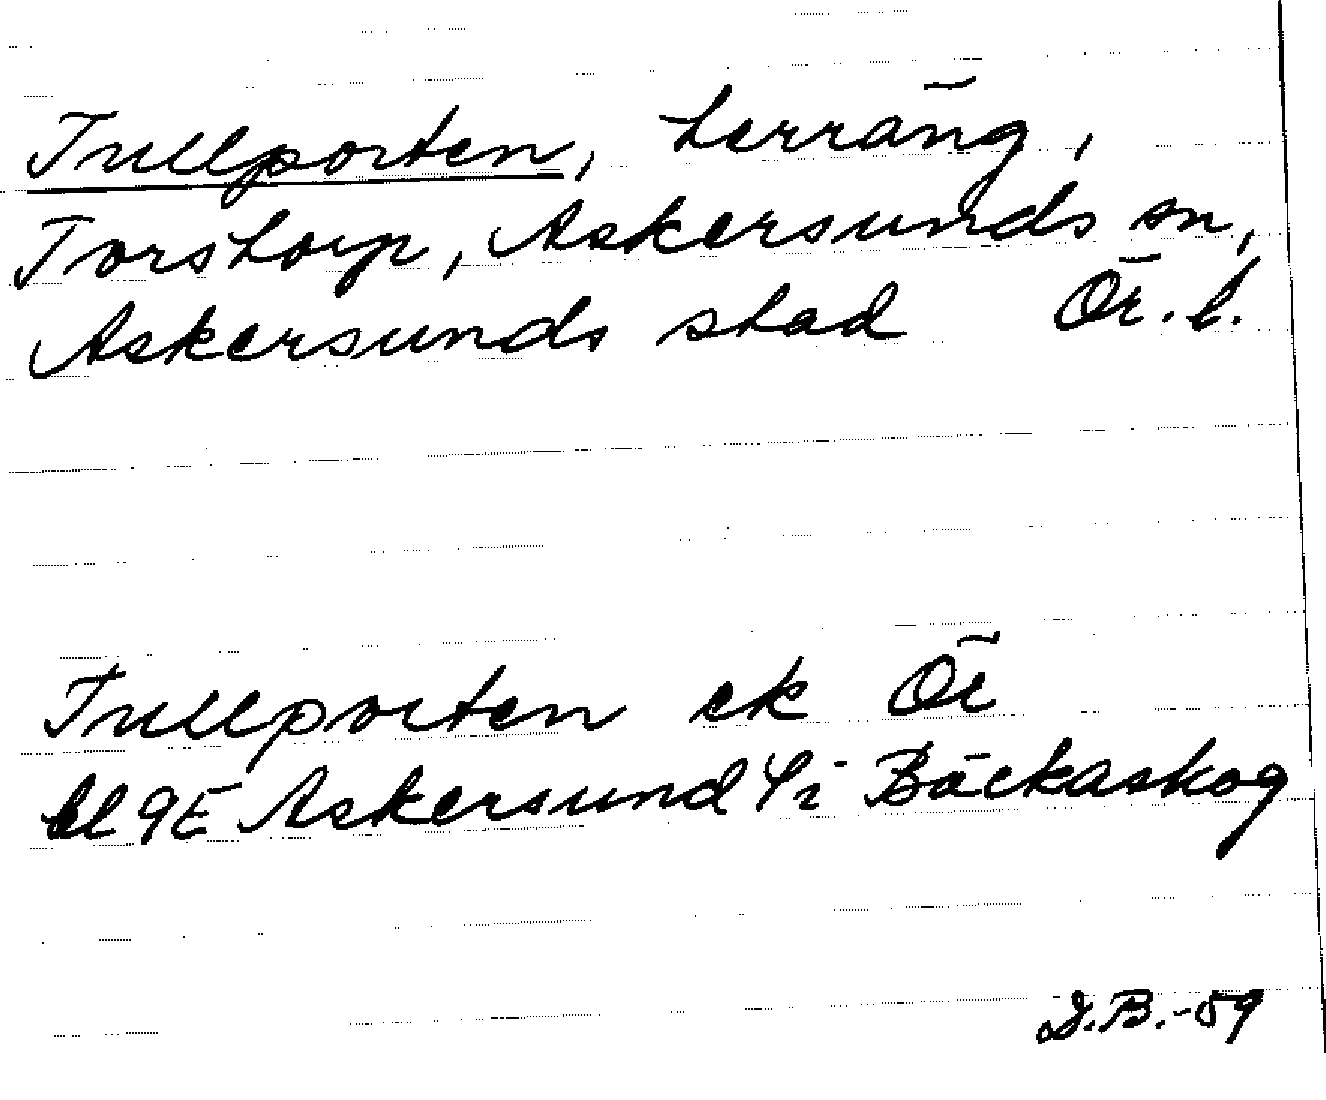 Tullporten, terräng,
Torstorp, Askersunds sn,
Askersunds stad Ör. l.
Tullporten ek Ör
bl 9E Askersund Bäckaskog
D.B.-59